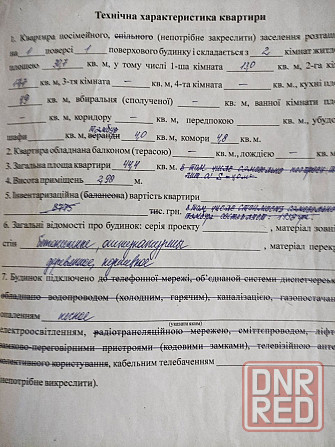 Технічна характеристика квартири
1. Квартира посімейного, спільного (непотрібне закреслити) заселення розташ
на 1 поверсі 1 поверхового будинку і складається з 2 кімнат житл
площею 30,7 кв. м, у тому числі 1-ша кімната 13,0 кв. м, 2-га кі
17,7 кв. м, 3-тя кімната — кв. м, 4-та кімната — кв. м, кухні пл
9 кв. м, вбиральня (сполученої) — кв. м, ванної кімнати пл
кв. м, коридору — кв. м, передпокою — кв. м, убуд
шафи кв. м, веранди 4,0 кв. м, комори 4,8 кв. м.
2. Квартира обладнана балконом (терасою) — кв. м, лоджією — кв. м
3. Загальна площа квартири 44,4 кв. м. в том числе
4. Висота приміщень 2,90 м.
5. Інвентаризаційна (балансова) вартість квартири
тис. грн. в том числе
6. Загальні відомості про будинок: серія проекту , матеріал зовні
стів , матеріал перекр
деревянное,
7. Будинок підключено до телефонної мережі, об'єднаної системи диспетчерськ
обладнано водопроводом (холодним, гарячим), каналізацією, газопостачан
опаленням печное
(указати яким)
електроосвітленням, радіотрансляційною мережею, сміттєпроводом, ліфт
замково-переговорними пристроями (кодовими замками), телевізійною антен
колективного користування, кабельним телебаченням
непотрібне викреслити).
DNR
RED